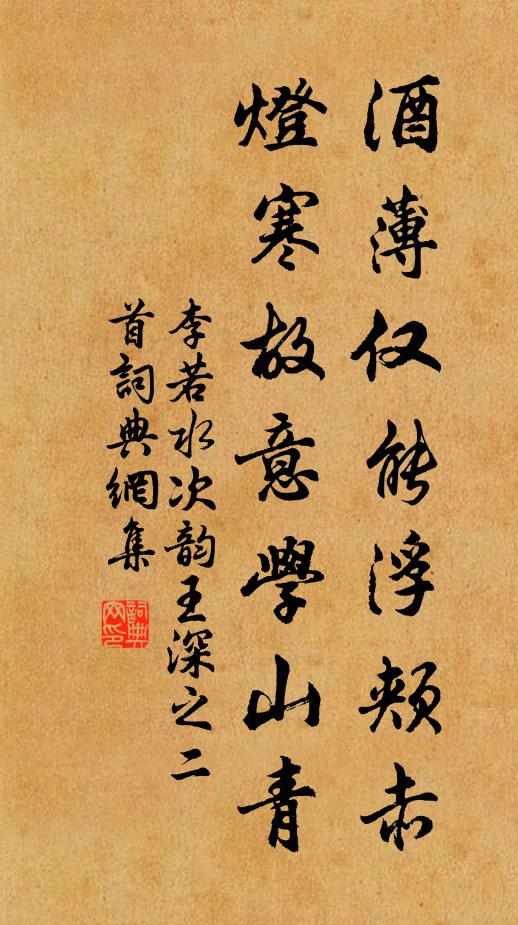 酒薄仅能浮頰赤
燈寒故意學山青
李若水次韵王深之二
首詞典網集
詞典
网印